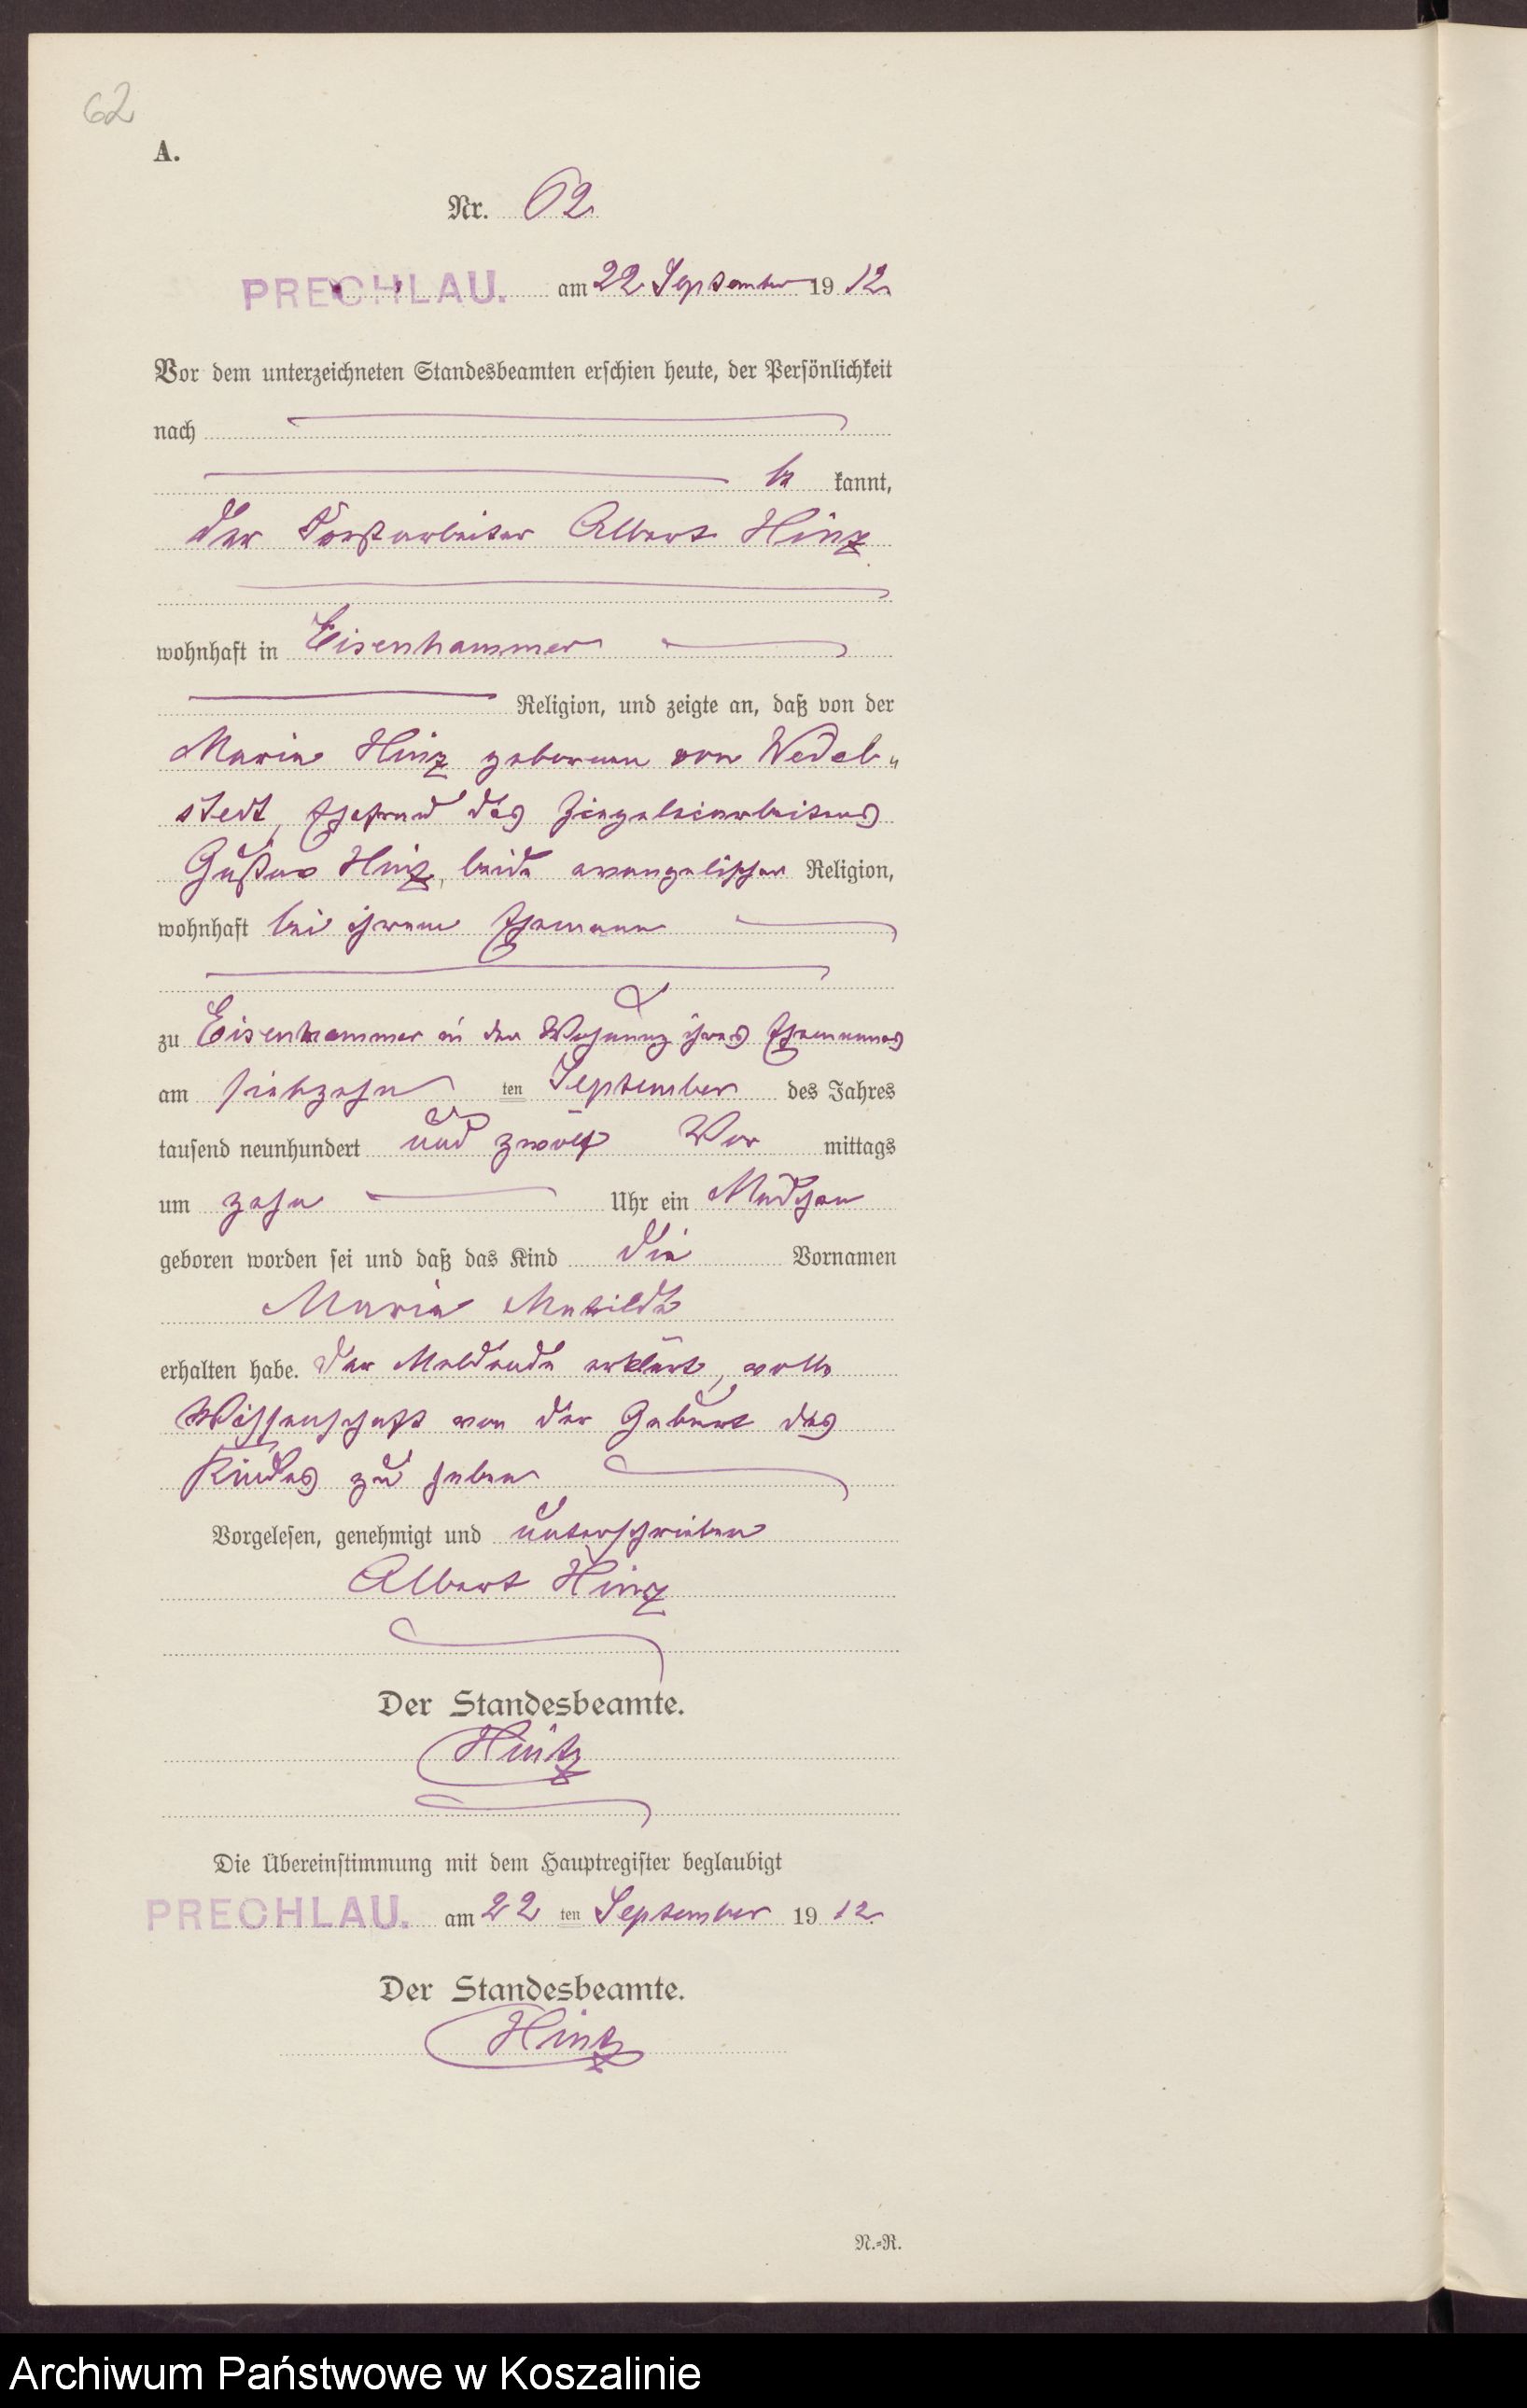 62
A.
Nr. 62.
PRECHLAU. am 22. September 1912.
Vor dem unterzeichneten Standesbeamten erschien heute, der Persönlichkeit
nach
be kannt,
der Forstarbeiter Albert Hinz
wohnhaft in Eisenhammer
Religion, und zeigte an, daß von der
Maria Hinz geborenen von Wedel„
stedt, Ehefrau des Ziegeleiarbeiters
Gustav Hinz, beide evangelischer Religion,
wohnhaft bei ihrem Ehemann
zu Eisenhammer in der Wohnung ihres Ehemannes
am siebzehn ten September des Jahres
tausend neunhundert und zwölf Vor mittags
um zehn Uhr ein Mädchen
geboren worden sei und daß das Kind die Vornamen
Maria Mathilde
erhalten habe. Der Meldende erklärt, volle
Wissenschaft von der Geburt des
Kindes zu haben
Vorgelesen, genehmigt und unterschrieben
Albert Hinz
Der Standesbeamte.
Hintz
Die Übereinstimmung mit dem Hauptregister beglaubigt
PRECHLAU. am 22 ten September 1912.
Der Standesbeamte.
Hintz
N.=R.
Archiwum Państwowe w Koszalinie